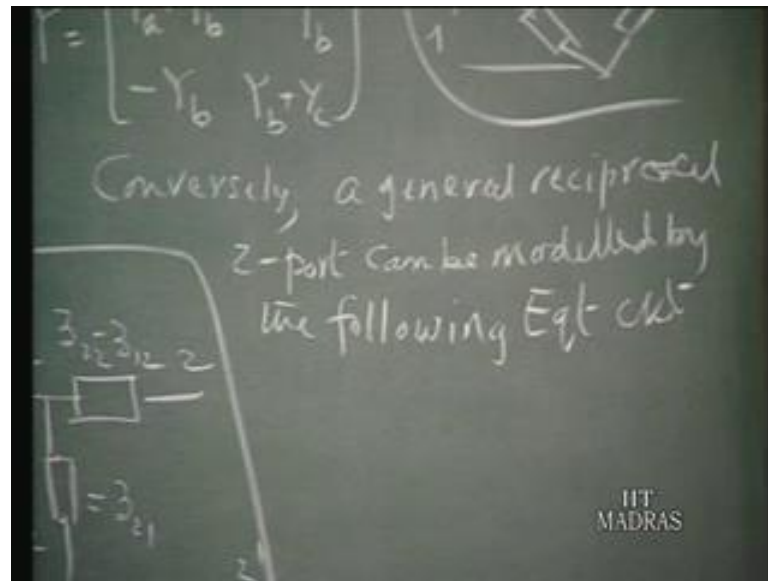 Y =
-Y_b Y_b+Y_c
Y_b
1
Conversely, a general reciprocal
2-port can be modelled by
the following Eqt ckt
3_22-3_12 2
=3_21
2'
IIT
MADRAS